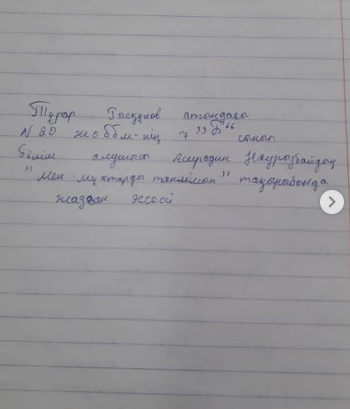 Тұрар Рысқұлов атындағы
N 20 жоббм-нің 7 "Б" сынып
білім алушысы Наурызбайдың
"Мен мұхтарды танимын" тақырабында
жазған эссей